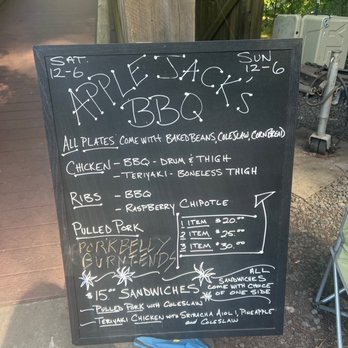 SAT. 12-6
SUN 12-6
APPLE JACK'S
BBQ
ALL PLATES COME WITH BAKED BEANS, COLESLAW, CORNBREAD
CHICKEN - BBQ - DRUM & THIGH
- TERIYAKI - BONELESS THIGH
RIBS - BBQ
RASPBERRY CHIPOTLE
PULLED PORK
PORKBELLY
BURNT ENDS
1 ITEM $20.00
2 ITEM $25.00
3 ITEM $30.00
$15.00 SANDWICHES
ALL
SANDWICHES
COME WITH CHOICE
OF ONE SIDE
- PULLED PORK WITH COLESLAW
- TERIYAKI CHICKEN WITH SRIRACHA AIOLI, PINEAPPLE
AND COLESLAW